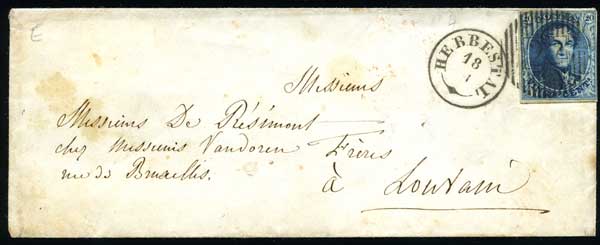 E
HERBESTAL
18
1
20 20
Messieurs
Messieurs De Résimont
chez messieurs Vandoren Frères
rue de Bruxelles.
à Louvain